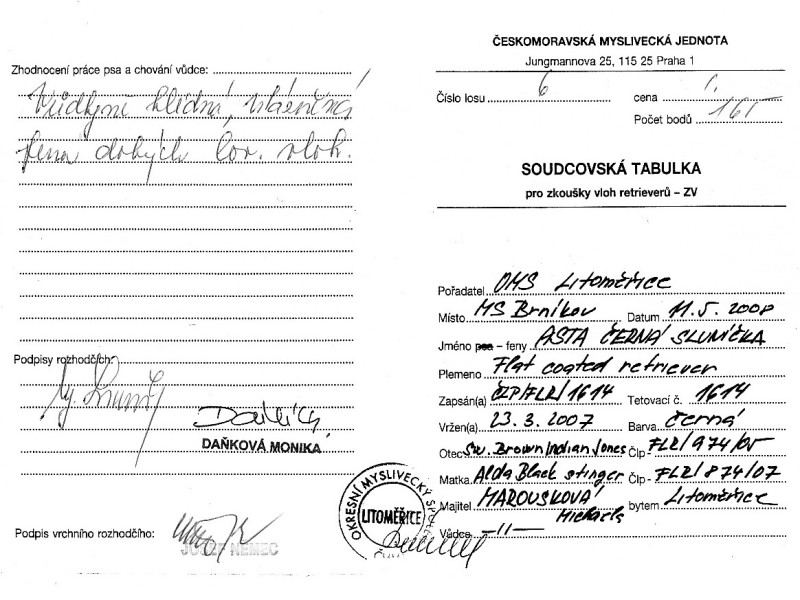 Zhodnocení práce psa a chování vůdce:
Vůdkyně klidná, vláčná
fena dobrých lov. vloh.
Podpisy rozhodčích:
DAŇKOVÁ MONIKA
Podpis vrchního rozhodčího:
JOSEF NĚMEC
OKRESNÍ MYSLIVECKÝ
LITOMĚŘICE
ČESKOMORAVSKÁ MYSLIVECKÁ JEDNOTA
Jungmannova 25, 115 25 Praha 1
Číslo losu 6 cena I.
Počet bodů 165
SOUDCOVSKÁ TABULKA
pro zkoušky vloh retrieverů – ZV
Pořadatel OMS Litoměřice
Místo MS Brníkov Datum 11.5.2008
Jméno psa – feny ASTA ČERNÁ SLUNÍČKA
Plemeno Flat coated retriever
Zapsán(a) ČLP/FLR/1614 Tetovací č. 1614
Vržen(a) 23.3.2007 Barva černá
Otec Sw. Brown Indian Jones Člp FLR/974/05
Matka Alda Black stinger Člp FLR/874/07
Majitel MAROUSKOVÁ bytem Litoměřice
Michaela
Vůdce —11—